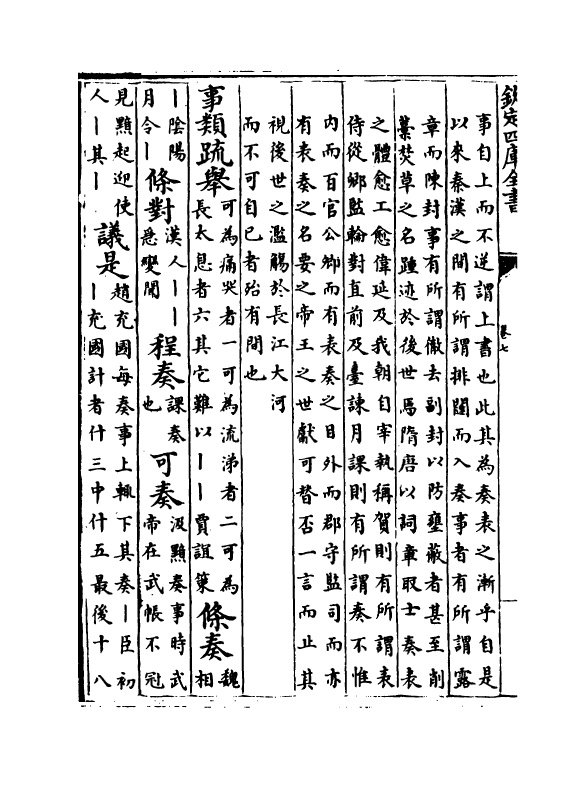 欽定四庫全書
卷七
事自上而不逆謂上書也此其為奏表之漸乎自是
以來秦漢之間有所謂排闥而入奏事者有所謂露
章而陳封事有所謂徹去副封以防壅蔽者甚至削
藁焚草之名踵迹於後世焉隋唐以詞章取士奏表
之體愈工愈偉延及我朝自宰執稱賀則有所謂表
侍從卿監輪對直前及臺諫月課則有所謂奏不惟
内而百官公卿而有表奏之目外而郡守監司而亦
有表奏之名要之帝王之世獻可替否一言而止其
視後世之濫觴於長江大河
而不可自已者殆有間也
事類疏舉可為痛哭者一可為流涕者二可為長太息者六其它難以丨丨賈誼策條奏魏相
丨陰陽月令丨條對漢人丨丨悉變聞程奏課奏也可奏汲黯奏事時武帝在武帳不冠
見黯起迎使人丨其丨議是趙充國每奏事上輒下其奏丨臣初丨充國計者什三中什五最後十八